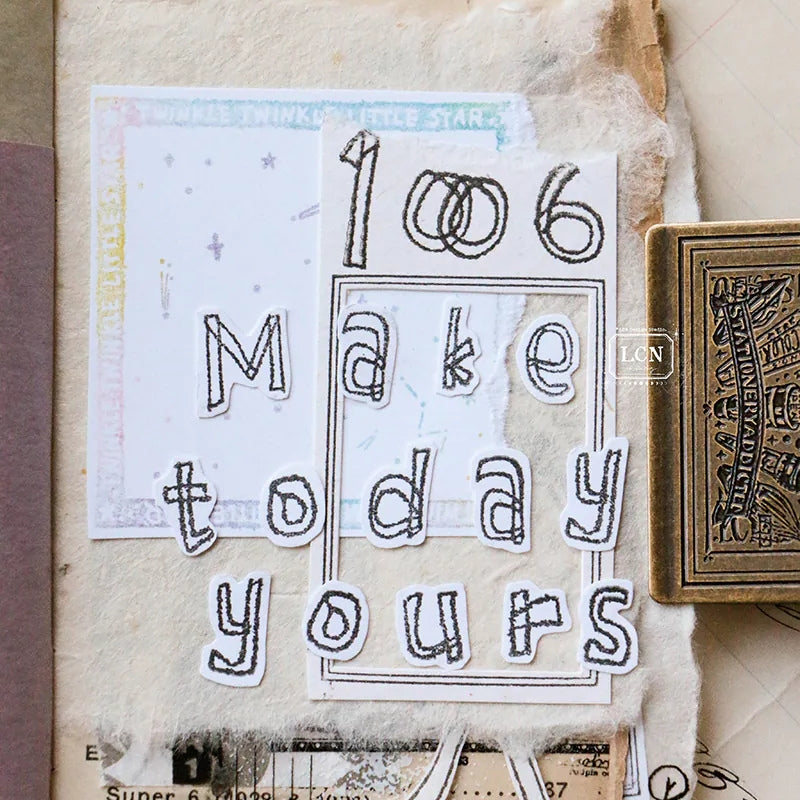 TWINKLE TWINKLE LITTLE STAR
1006
Make
today
yours
LCN
STATIONERYADDICTION
COCOA
E
1
Super 6
37